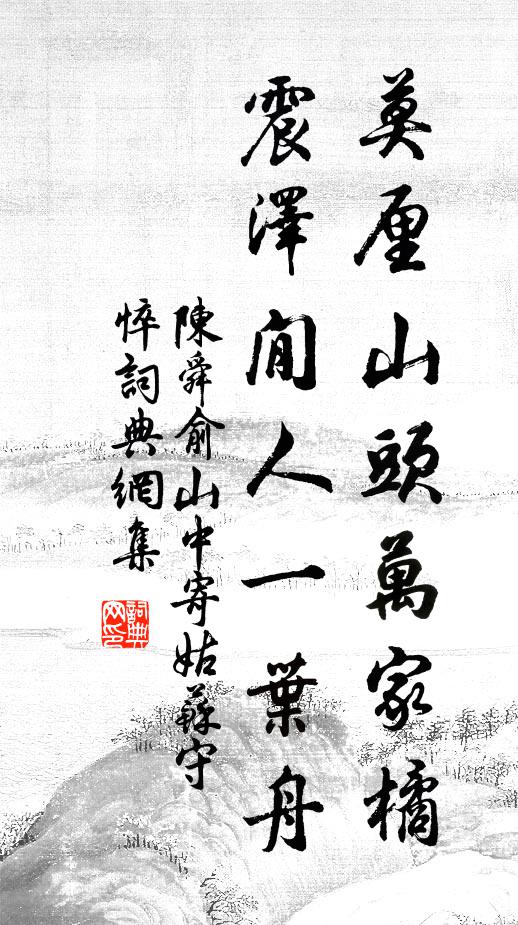 莫厘山頭萬家橘
震澤閒人一葉舟
陳舜俞山中寄姑蘇守
悴詞典網集
詞典网印